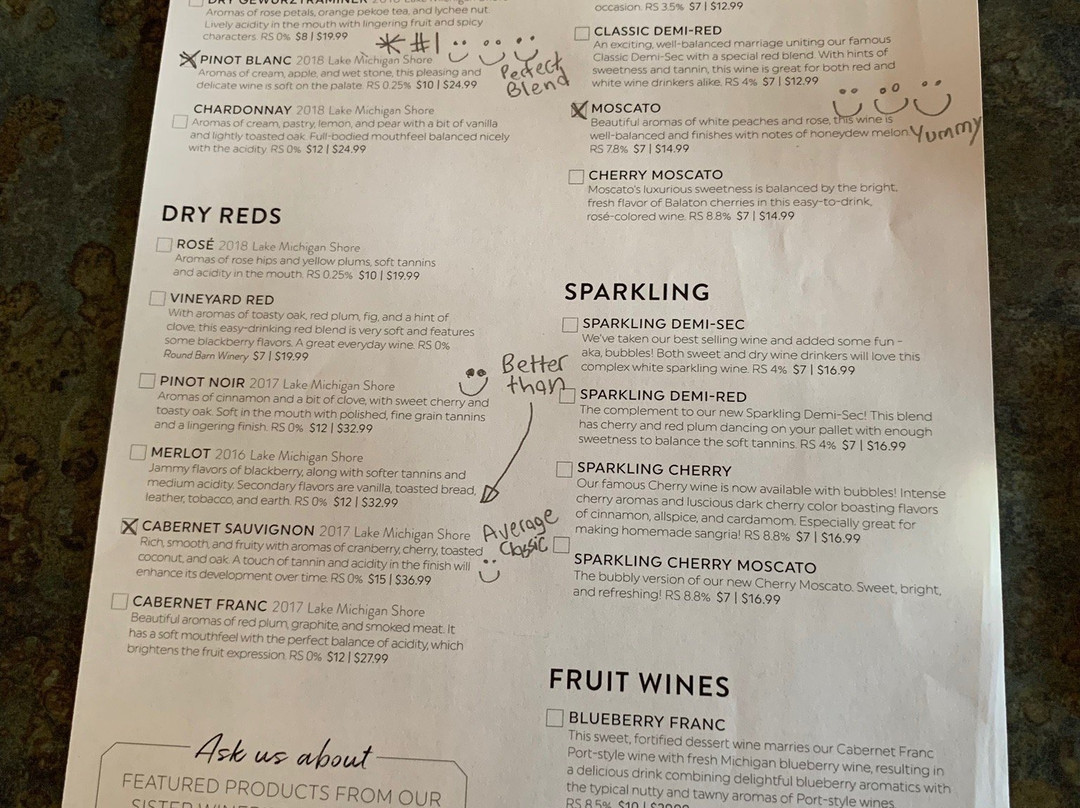 DRY GEWÜRZTRAMINER 2018 Lake Michigan Shore
Aromas of rose petals, orange pekoe tea, and lychee nut
Lively acidity in the mouth with lingering fruit and spicy
characters. RS 0% $8 | $19.99
*#1
PINOT BLANC 2018 Lake Michigan Shore
Aromas of cream, apple, and wet stone, this pleasing and
delicate wine is soft on the palate. RS 0.25% $10 | $24.99
Perfect
Blend
CHARDONNAY 2018 Lake Michigan Shore
Aromas of cream, pastry, lemon, and pear with a bit of vanilla
and lightly toasted oak. Full-bodied mouthfeel balanced nicely
with the acidity. RS 0% $12 | $24.99
DRY REDS
ROSÉ 2018 Lake Michigan Shore
Aromas of rose hips and yellow plums, soft tannins
and acidity in the mouth. RS 0.25% $10 | $19.99
VINEYARD RED
With aromas of toasty oak, red plum, fig, and a hint of
clove, this easy-drinking red blend is very soft and features
some blackberry flavors. A great everyday wine. RS 0%
Round Barn Winery $7 | $19.99
PINOT NOIR 2017 Lake Michigan Shore
Aromas of cinnamon and a bit of clove, with sweet cherry and
toasty oak. Soft in the mouth with polished, fine grain tannins
and a lingering finish. RS 0% $12 | $32.99
Better
than
MERLOT 2016 Lake Michigan Shore
Jammy flavors of blackberry, along with softer tannins and
medium acidity. Secondary flavors are vanilla, toasted bread,
leather, tobacco, and earth. RS 0% $12 | $32.99
CABERNET SAUVIGNON 2017 Lake Michigan Shore
Rich, smooth, and fruity with aromas of cranberry, cherry, toasted
coconut, and oak. A touch of tannin and acidity in the finish will
enhance its development over time. RS 0% $15 | $36.99
Average
Classic
CABERNET FRANC 2017 Lake Michigan Shore
Beautiful aromas of red plum, graphite, and smoked meat. It
has a soft mouthfeel with the perfect balance of acidity, which
brightens the fruit expression. RS 0% $12 | $27.99
Ask us about
FEATURED PRODUCTS FROM OUR
occasion. RS 3.5% $7 | $12.99
CLASSIC DEMI-RED
An exciting, well-balanced marriage uniting our famous
Classic Demi-Sec with a special red blend. With hints of
sweetness and tannin, this wine is great for both red and
white wine drinkers alike. RS 4% $7 | $12.99
MOSCATO
Beautiful aromas of white peaches and rose, this wine is
well-balanced and finishes with notes of honeydew melon.
RS 7.8% $7 | $14.99
Yummy
CHERRY MOSCATO
Moscato's luxurious sweetness is balanced by the bright,
fresh flavor of Balaton cherries in this easy-to-drink,
rosé-colored wine. RS 8.8% $7 | $14.99
SPARKLING
SPARKLING DEMI-SEC
We've taken our best selling wine and added some fun -
aka, bubbles! Both sweet and dry wine drinkers will love this
complex white sparkling wine. RS 4% $7 | $16.99
SPARKLING DEMI-RED
The complement to our new Sparkling Demi-Sec! This blend
has cherry and red plum dancing on your pallet with enough
sweetness to balance the soft tannins. RS 4% $7 | $16.99
SPARKLING CHERRY
Our famous Cherry wine is now available with bubbles! Intense
cherry aromas and luscious dark cherry color boasting flavors
of cinnamon, allspice, and cardamom. Especially great for
making homemade sangria! RS 8.8% $7 | $16.99
SPARKLING CHERRY MOSCATO
The bubbly version of our new Cherry Moscato. Sweet, bright,
and refreshing! RS 8.8% $7 | $16.99
FRUIT WINES
BLUEBERRY FRANC
This sweet, fortified dessert wine marries our Cabernet Franc
Port-style wine with fresh Michigan blueberry wine, resulting in
a delicious drink combining delightful blueberry aromatics with
the typical nutty and tawny aromas of Port-style wines.
RS 8.5% $10 |